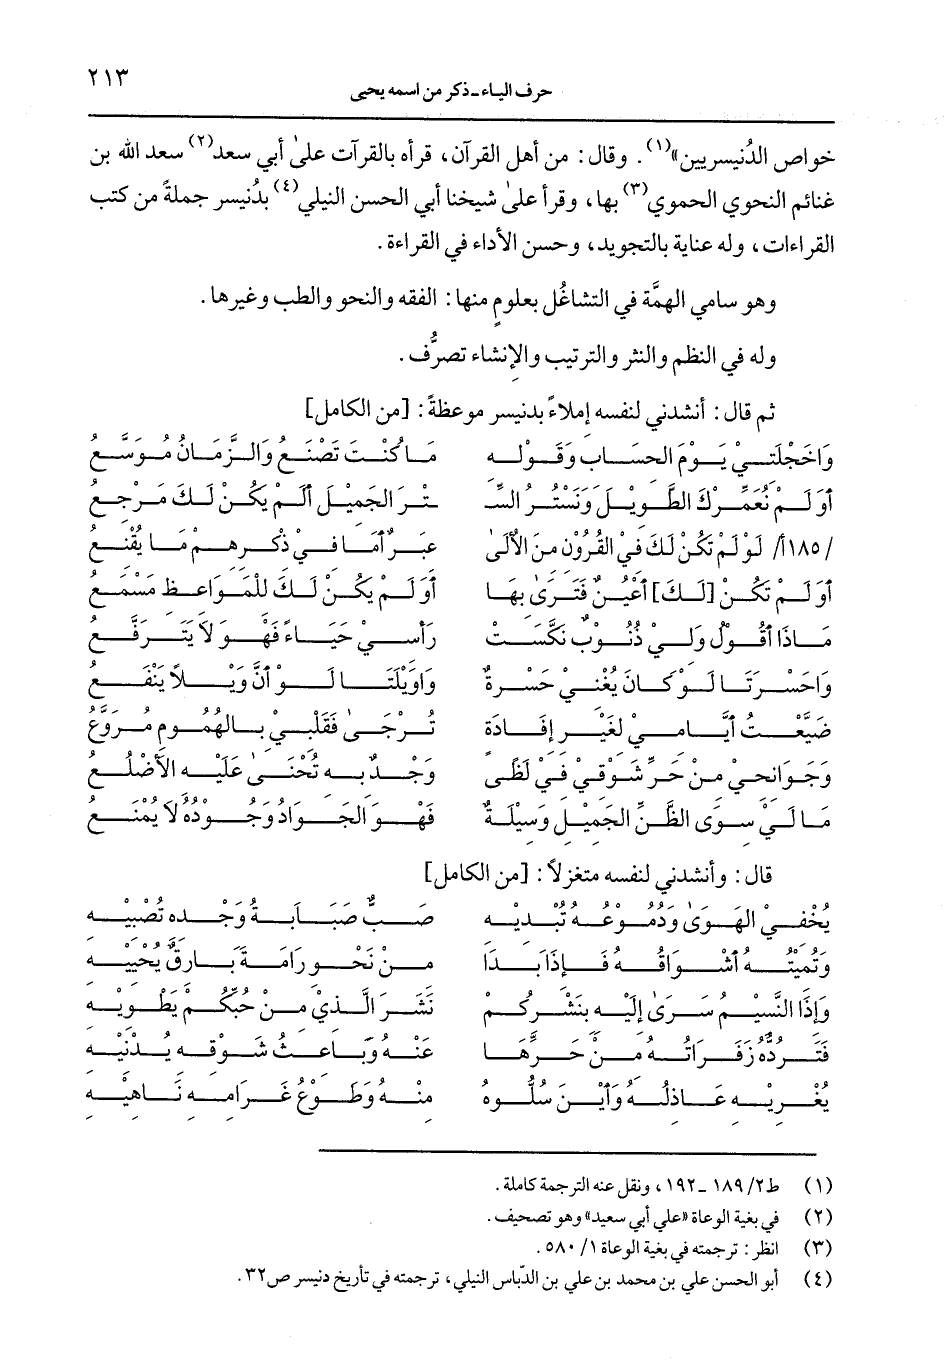 ٢١٣
حرف الياء ـ ذكر من اسمه يحيى
خواص الدُنيسريين»(١). وقال: من أهل القرآن، قرأه بالقرآت علىٰ أبي سعد(٢) سعد الله بن
غنائم النحوي الحموي(٣) بها، وقرأ علىٰ شيخنا أبي الحسن النيلي(٤) بدُنيسر جملةً من كتب
القراءات، وله عناية بالتجويد، وحسن الأداء في القراءة.
وهو سامي الهمَّة في التشاغُل بعلومٍ منها: الفقه والنحو والطب وغيرها.
وله في النظم والنثر والترتيب والإنشاء تصرُّف.
ثم قال: أنشدني لنفسه إملاءً بدنيسر موعظةً: [من الكامل]
وَاخَجْلَتِيْ يَوْمَ الحسَابِ وَقَوْلِهِ مَا كُنْتَ تَصْنَعُ وَالزَّمَانُ مُوَسَّعُ
أَوَ لَمْ نُعَمِّرْكَ الطَّوِيْلَ وَنَسْتُرِ السِّـ ـتْرَ الجَمِيْلَ أَلَمْ يَكُنْ لَكَ مَرْجِعُ
/١٨٥أ/ لَوْ لَمْ تَكُنْ لَكَ فِيْ القُرُوْنِ مِنَ الأُلَىٰ عِبَرٌ أَمَا فِيْ ذِكْرِهِمْ مَا يُقْنِعُ
أَوَ لَمْ تَكُنْ [لَكَ] أَعْيُنٌ فَتَرَىٰ بِهَا أَوَ لَمْ يَكُنْ لَكَ لِلْمَوَاعِظِ مَسْمَعُ
مَاذَا أَقُوْلُ وَلِيْ ذُنُوْبٌ نَكَّسَتْ رَأْسِيْ حَيَاءً فَهْوَ لاَ يَتَرَفَّعُ
وَاحَسْرَتَا لَوْ كَانَ يُغْنِيْ حَسْرَةٌ وَاوَيْلَتَا لَوْ أَنَّ وَيْلاً يَنْفَعُ
ضَيَّعْتُ أَيَّامِيْ لِغَيْرِ إِفَادَةٍ تُرْجَىٰ فَقَلْبِيْ بِالهُمُومِ مُرَوَّعُ
وَجَوَانِحِيْ مِنْ حَرِّ شَوْقِيْ فِيْ لَظًى وَجْدٌ بِهِ تُحْنَىٰ عَلَيْهِ الأَضْلُعُ
مَا لَيْ سِوَى الظَّنِّ الجَمِيْلِ وَسِيْلَةٌ فَهْوَ الجَوَادُ وَجُوْدُهُ لاَ يُمْنَعُ
قال: وأنشدني لنفسه متغزلاً: [من الكامل]
يُخْفِيْ الهَوَىٰ وَدُمُوْعُهُ تُبْدِيْهِ صَبٌّ صَبَابَةُ وَجْدِهِ تُصْبِيْهِ
وَتُمِيْتُهُ أَشْوَاقُهُ فَإِذَا بَدَا مِنْ نَحْوِ رَامَةَ بَارِقٌ يُحْيِيْهِ
وَإِذَا النَّسِيْمُ سَرَىٰ إِلَيْهِ بِنَشْرِكُمْ نَشَرَ الَّذِيْ مِنْ حُبِّكُمْ يَطْوِيْهِ
فَتَرُدُّهُ زَفَرَاتُهُ مِنْ حَرِّهَا عَنْهُ وَبَاعِثُ شَوْقِهِ يُدْنِيْهِ
يُغْرِيْهِ عَاذِلُهُ وَأَيْنَ سُلُوُّهُ مِنْهُ وَطَوْعُ غَرَامِهِ نَاهِيْهِ
(١) ط٢/ ١٨٩ ـ ١٩٢، ونقل عنه الترجمة كاملة.
(٢) في بغية الوعاة «علي أبي سعيد» وهو تصحيف.
(٣) انظر: ترجمته في بغية الوعاة ١/ ٥٨٠.
(٤) أبو الحسن علي بن محمد بن علي بن الدّباس النيلي، ترجمته في تأريخ دنيسر ص٣٢.